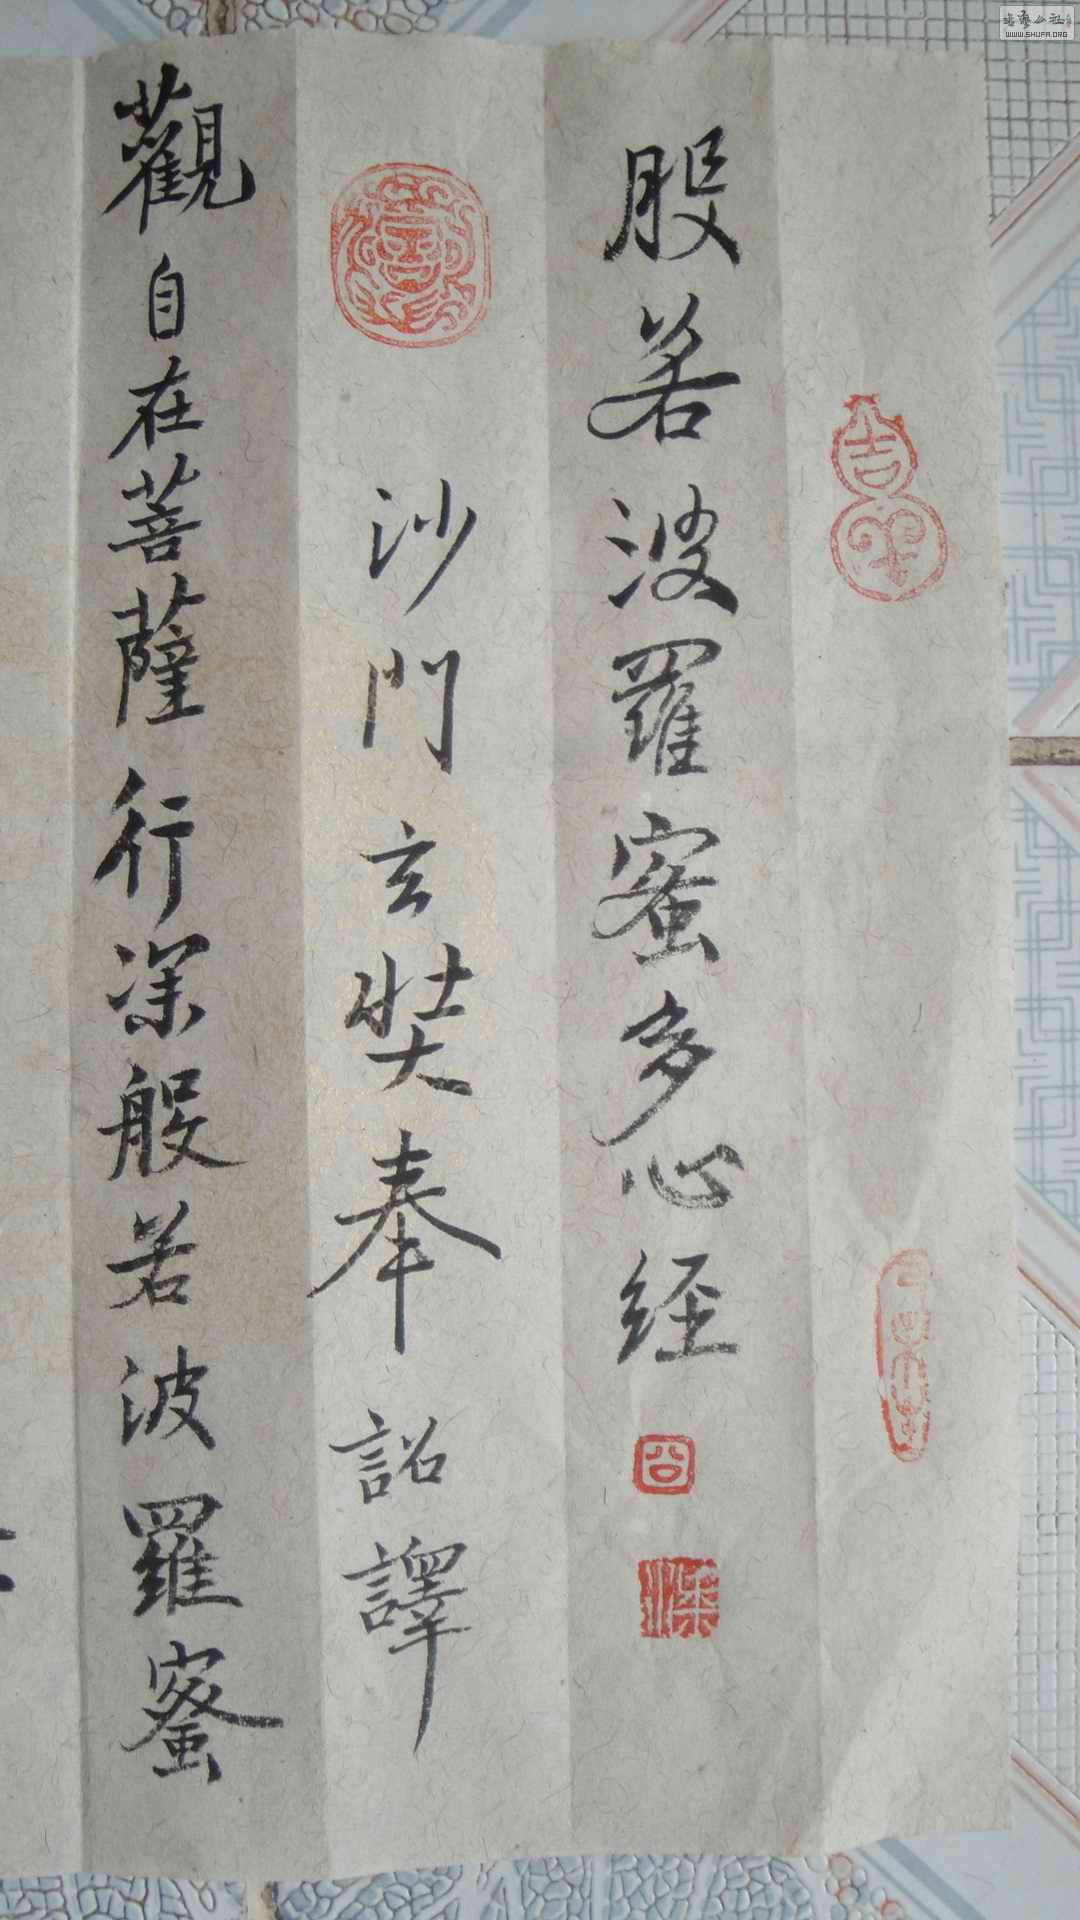 般若波羅蜜多心经
沙門玄奘奉詔譯
觀自在菩薩行深般若波羅蜜
吉
WWW.SHUFA.ORG